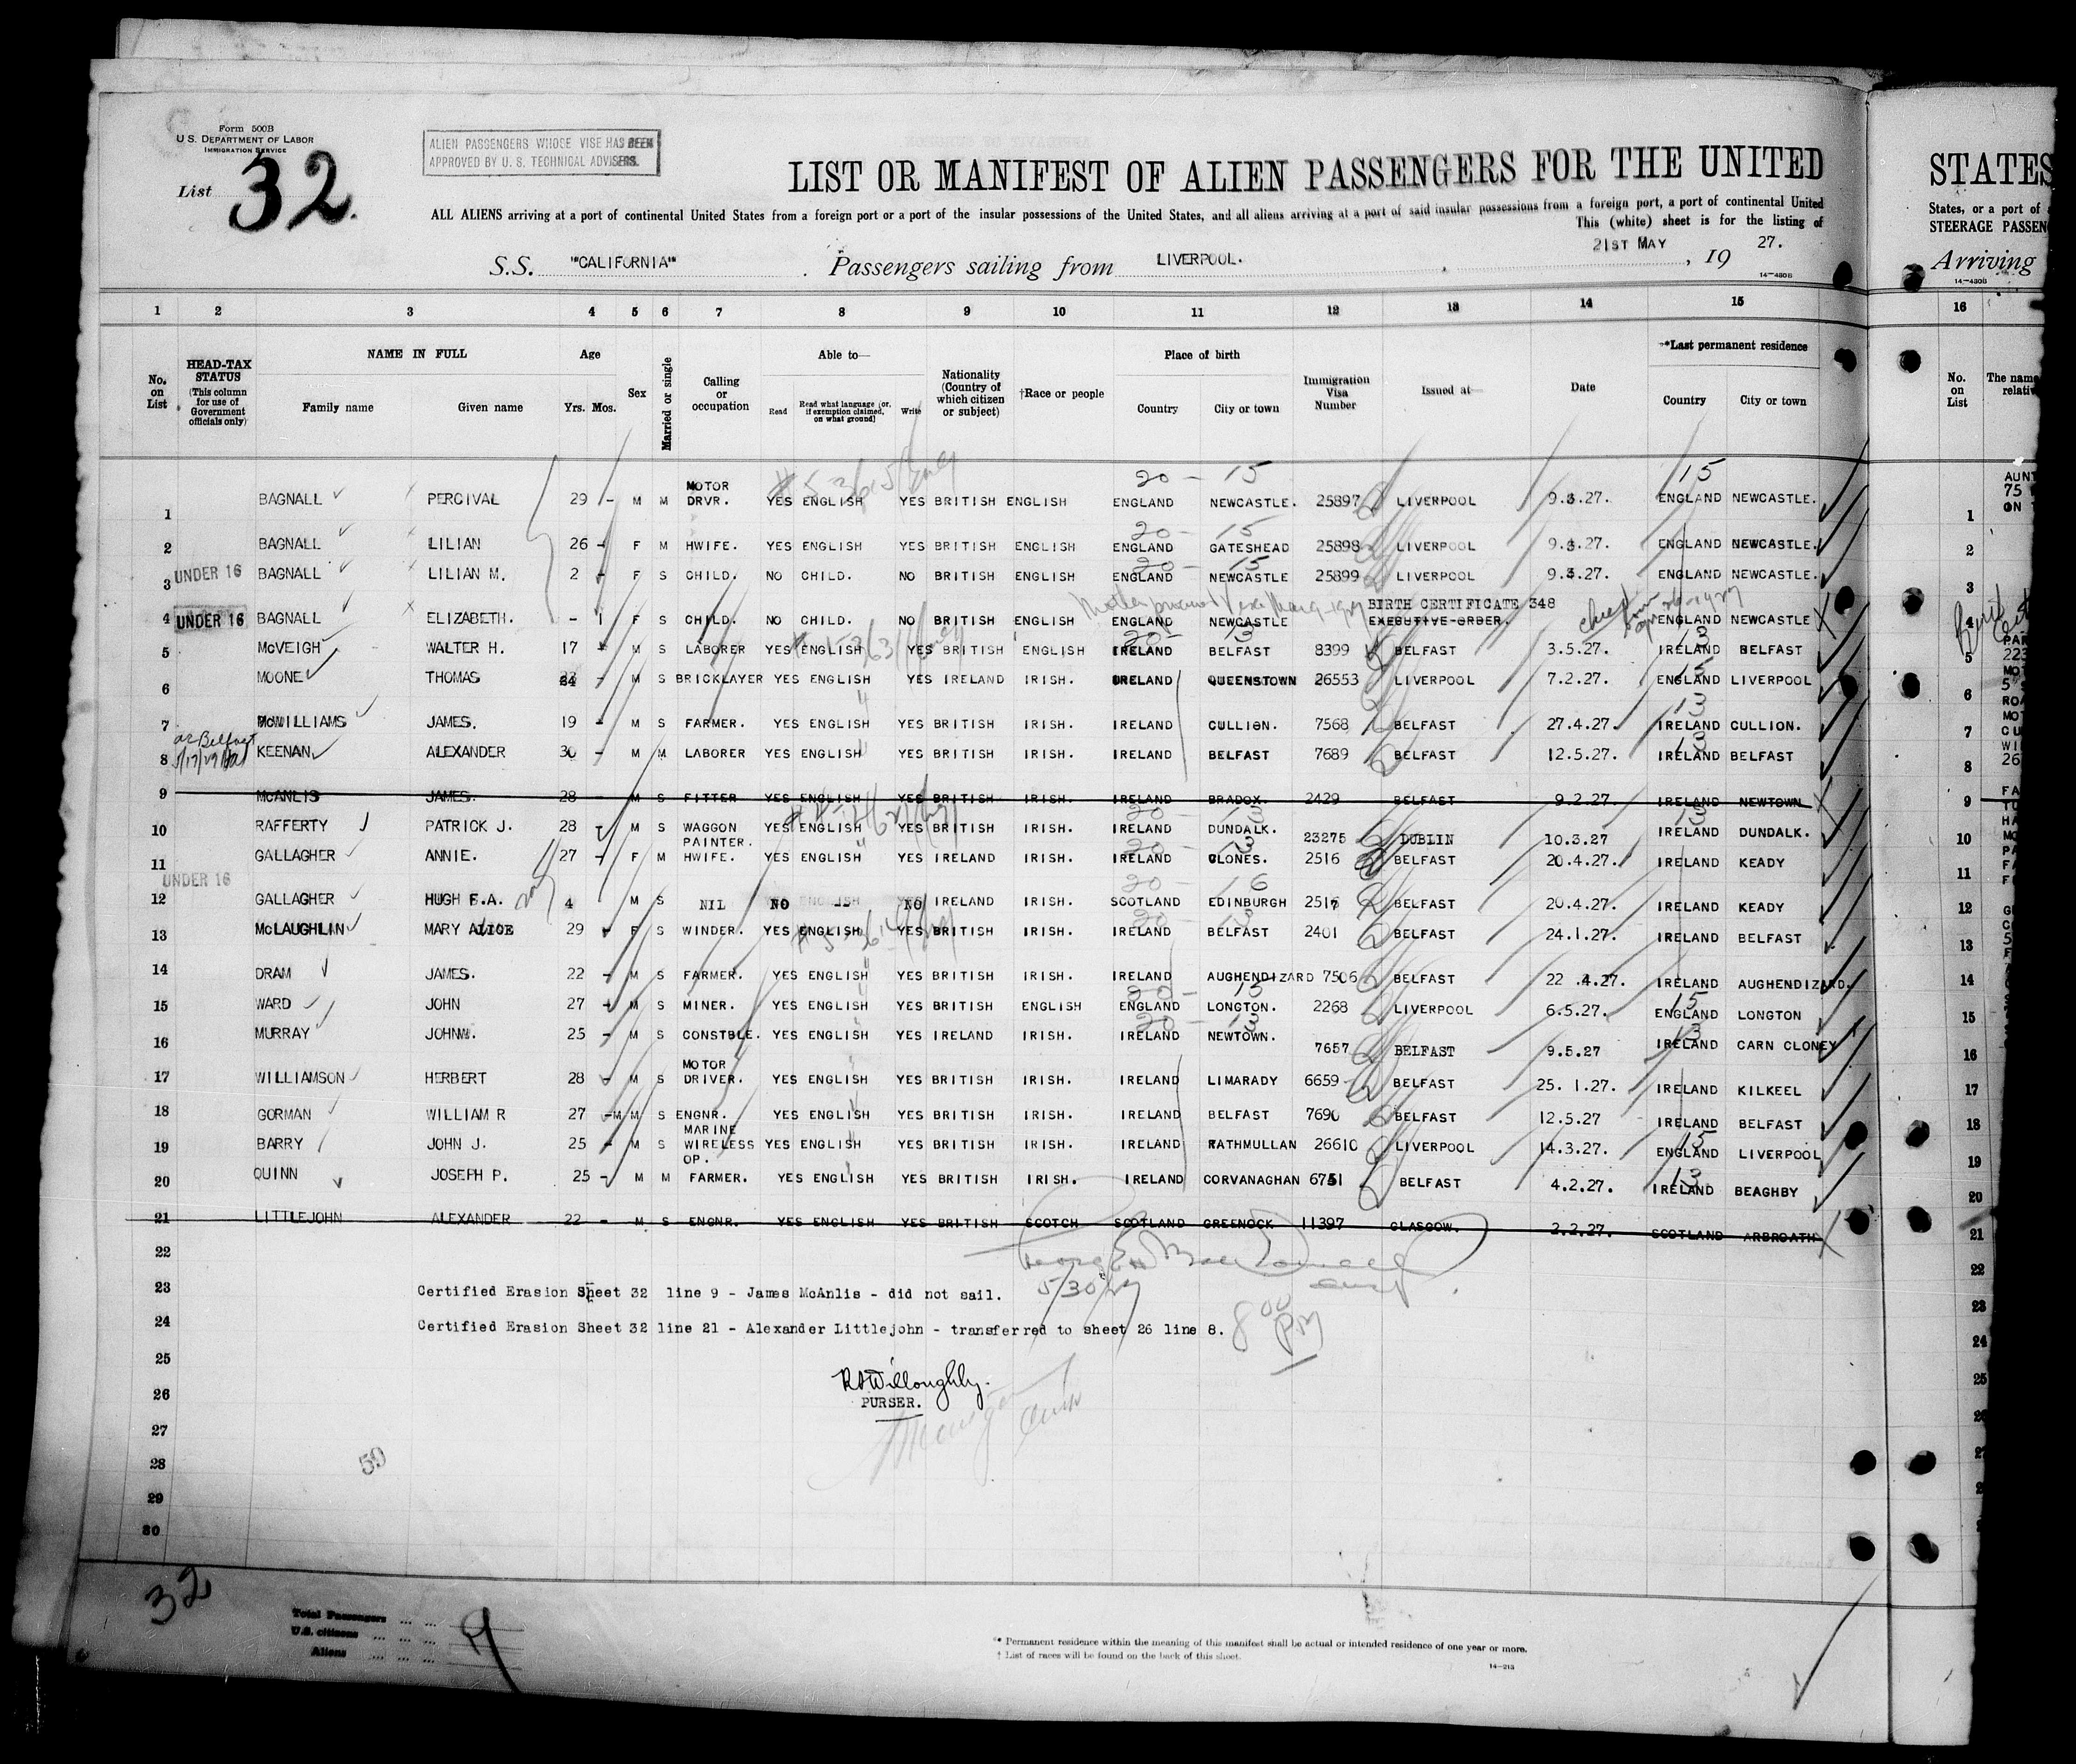 Form 500B
U. S. DEPARTMENT OF LABOR
IMMIGRATION SERVICE
List 32.
ALIEN PASSENGERS WHOSE VISE HAS BEEN
APPROVED BY U. S. TECHNICAL ADVISERS.
LIST OR MANIFEST OF ALIEN PASSENGERS FOR THE UNITED
ALL ALIENS arriving at a port of continental United States from a foreign port or a port of the insular possessions of the United States, and all aliens arriving at a port of said insular possessions from a foreign port, a port of continental United
This (white) sheet is for the listing of
S.S. "CALIFORNIA" . Passengers sailing from LIVERPOOL. , 21ST MAY , 19 27.
14-430B
1 2 3 4 5 6 7 8 9 10 11 12 13 14 15
No. on List
HEAD-TAX STATUS (This column for use of Government officials only)
NAME IN FULL
Family name Given name
Age
Yrs. Mos.
Sex
Married or single
Calling or occupation
Able to—
Read Read what language (or, if exemption claimed, on what ground) Write
Nationality (Country of which citizen or subject)
†Race or people
Place of birth
Country City or town
Immigration Visa Number
Issued at—
Date
*Last permanent residence
Country City or town
1 BAGNALL PERCIVAL 29 - M M MOTOR DRVR. YES ENGLISH YES BRITISH ENGLISH ENGLAND NEWCASTLE. 25897 LIVERPOOL 9.3.27. ENGLAND NEWCASTLE.
2 BAGNALL LILIAN 26 - F M HWIFE. YES ENGLISH YES BRITISH ENGLISH ENGLAND GATESHEAD 25898 LIVERPOOL 9.3.27. ENGLAND NEWCASTLE.
3 UNDER 16 BAGNALL LILIAN M. 2 - F S CHILD. NO CHILD. NO BRITISH ENGLISH ENGLAND NEWCASTLE 25899 LIVERPOOL 9.3.27. ENGLAND NEWCASTLE.
4 UNDER 16 BAGNALL ELIZABETH. - 1 F S CHILD. NO CHILD. NO BRITISH ENGLISH ENGLAND NEWCASTLE BIRTH CERTIFICATE 348 EXECUTIVE ORDER. ENGLAND NEWCASTLE
5 McVEIGH WALTER H. 17 - M S LABORER YES ENGLISH YES BRITISH ENGLISH IRELAND BELFAST 8399 BELFAST 3.5.27. IRELAND BELFAST
6 MOONE THOMAS 24 - M S BRICKLAYER YES ENGLISH YES IRELAND IRISH. IRELAND QUEENSTOWN 26553 LIVERPOOL 7.2.27. ENGLAND LIVERPOOL
7 McWILLIAMS JAMES. 19 - M S FARMER. YES ENGLISH YES BRITISH IRISH. IRELAND CULLION. 7568 BELFAST 27.4.27. IRELAND CULLION.
8 KEENAN ALEXANDER 30 - M M LABORER YES ENGLISH YES BRITISH IRISH. IRELAND BELFAST 7689 BELFAST 12.5.27. IRELAND BELFAST
9 McANLIS JAMES. 28 - M S FITTER YES ENGLISH YES BRITISH IRISH. IRELAND BRADOX. 2429 BELFAST 9.2.27. IRELAND NEWTOWN
10 RAFFERTY PATRICK J. 28 M S WAGGON PAINTER. YES ENGLISH YES BRITISH IRISH. IRELAND DUNDALK. 23275 DUBLIN 10.3.27 IRELAND DUNDALK.
11 GALLAGHER ANNIE. 27 - F M HWIFE. YES ENGLISH YES IRELAND IRISH. IRELAND CLONES. 2516 BELFAST 20.4.27. IRELAND KEADY
UNDER 16
12 GALLAGHER HUGH F.A. 4 M S NIL NO -- NO IRELAND IRISH. SCOTLAND EDINBURGH 2517 BELFAST 20.4.27. IRELAND KEADY
13 McLAUGHLIN MARY ALICE 29 F S WINDER. YES ENGLISH YES BRITISH IRISH. IRELAND BELFAST 2401 BELFAST 24.1.27. IRELAND BELFAST
14 DRAM JAMES. 22 - M S FARMER. YES ENGLISH YES BRITISH IRISH. IRELAND AUGHENDIZARD 7506 BELFAST 22 .4.27. IRELAND AUGHENDIZARD.
15 WARD JOHN 27 - M S MINER. YES ENGLISH YES BRITISH ENGLISH ENGLAND LONGTON. 2268 LIVERPOOL 6.5.27. ENGLAND LONGTON
16 MURRAY JOHN W. 25 - M S CONSTBLE. YES ENGLISH YES IRELAND IRISH. IRELAND NEWTOWN. 7657 BELFAST 9.5.27 IRELAND CARN CLONEY
17 WILLIAMSON HERBERT 28 - M S MOTOR DRIVER. YES ENGLISH YES BRITISH IRISH. IRELAND LIMARADY 6659 BELFAST 25. 1.27. IRELAND KILKEEL
18 GORMAN WILLIAM R 27 -M M S ENGNR. YES ENGLISH YES BRITISH IRISH. IRELAND BELFAST 7690 BELFAST 12.5.27 IRELAND BELFAST
19 BARRY JOHN J. 25 - M S MARINE WIRELESS OP. YES ENGLISH YES BRITISH IRISH. IRELAND RATHMULLAN 26610 LIVERPOOL 14.3.27. ENGLAND LIVERPOOL
20 QUINN JOSEPH P. 25 - M M FARMER. YES ENGLISH YES BRITISH IRISH. IRELAND CORVANAGHAN 6751 BELFAST 4.2.27. IRELAND BEAGHBY
21 LITTLEJOHN ALEXANDER 22 - M S ENGNR. YES ENGLISH YES BRITISH SCOTCH SCOTLAND GREENOCK 11397 GLASGOW. 2.2.27. SCOTLAND ARBROATH
22
23 Certified Erasion Sheet 32 line 9 - James McAnlis - did not sail. 5/30/27
24 Certified Erasion Sheet 32 line 21 - Alexander Littlejohn - transferred to sheet 26 line 8. 8 00 PM
25
26 Willoughby.
PURSER.
27
28 59
29
30
32
Total Passengers ... ...
U.S. citizens ... ... ...
Aliens ... ... ...
* Permanent residence within the meaning of this manifest shall be actual or intended residence of one year or more.
† List of races will be found on the back of this sheet.
14-213
STATES
States, or a port of
STEERAGE PASSEN
Arriving
14-430B
16
No. on List
The name
relativ
1 AUNT
75
ON
2
3
4
5 223
6
7
8 26
9
10
11
12
13
14
15
16
17
18
19
20
21
22
23
24
25
26